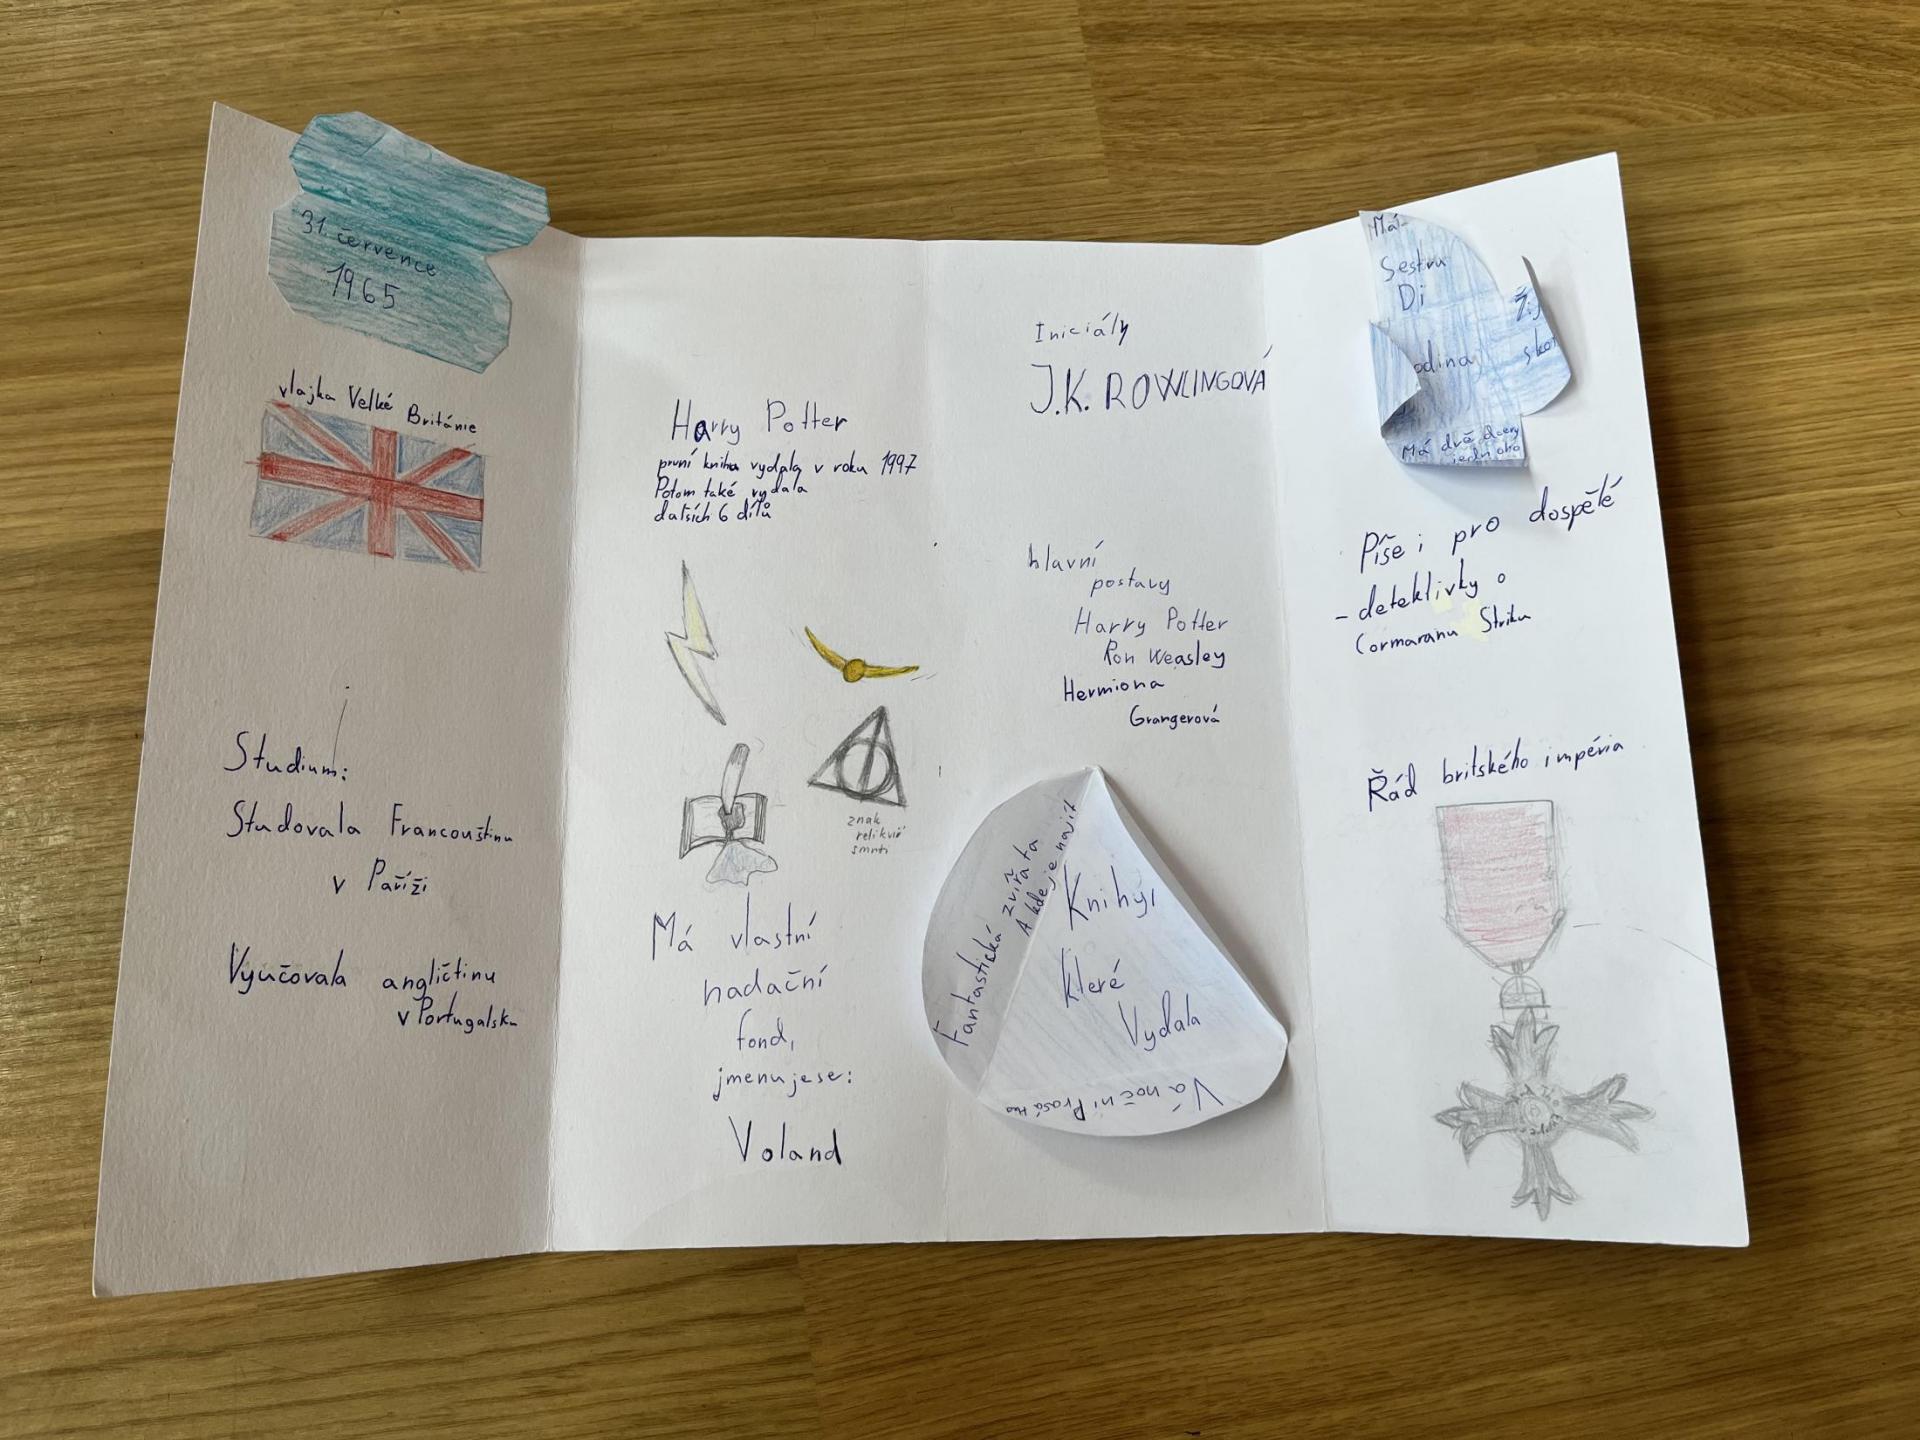 31. července
1965
vlajka Velké Británie
Studium:
Studovala Francouštinu
v Paříži
Vyučovala angličtinu
v Portugalsku
Harry Potter
první kniha vydala v roku 1997
Potom také vydala
dalších 6 dílů
znak
relikvií
smrti
Má vlastní
nadační
fond,
jmenuje se:
Voland
Iniciály
J.K. ROWLINGOVÁ
hlavní
postavy
Harry Potter
Ron Weasley
Hermiona
Grangerová
Fantastická zvířata
A kde je najít
Knihy,
které
Vydala
Vánoční Prasátko
Má
Sestru
Di
odina
Má dvě dcery
Píše i pro dospělé
- detektivky o
Cormaranu Striku
Řád britského impéria